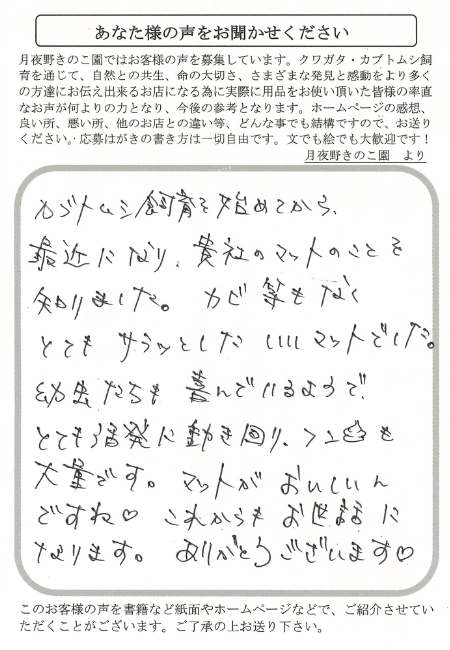 あなた様の声をお聞かせください
月夜野きのこ園ではお客様の声を募集しています。クワガタ・カブトムシ飼
育を通じて、自然との共生、命の大切さ、さまざまな発見と感動をより多く
の方達にお伝え出来るお店になる為に実際に用品をお使い頂いた皆様の率直
なお声が何よりの力となり、今後の参考となります。ホームページの感想、
良い所、悪い所、他のお店との違い等、どんな事でも結構ですので、お送り
ください。応募はがきの書き方は一切自由です。文でも絵でも大歓迎です！
月夜野きのこ園　より
カブトムシ飼育を始めてから、
最近になり、貴社のマットのことを
知りました。カビ等もなく
とてもサラッとしたいいマットでした。
幼虫たちも喜んでいるようで、
とても活発に動き回り、フンも
大量です。マットがおいしいん
ですね♡ これからもお世話に
なります。ありがとうございます♡
このお客様の声を書籍など紙面やホームページなどで、ご紹介させてい
ただくことがございます。ご了承の上お送り下さい。